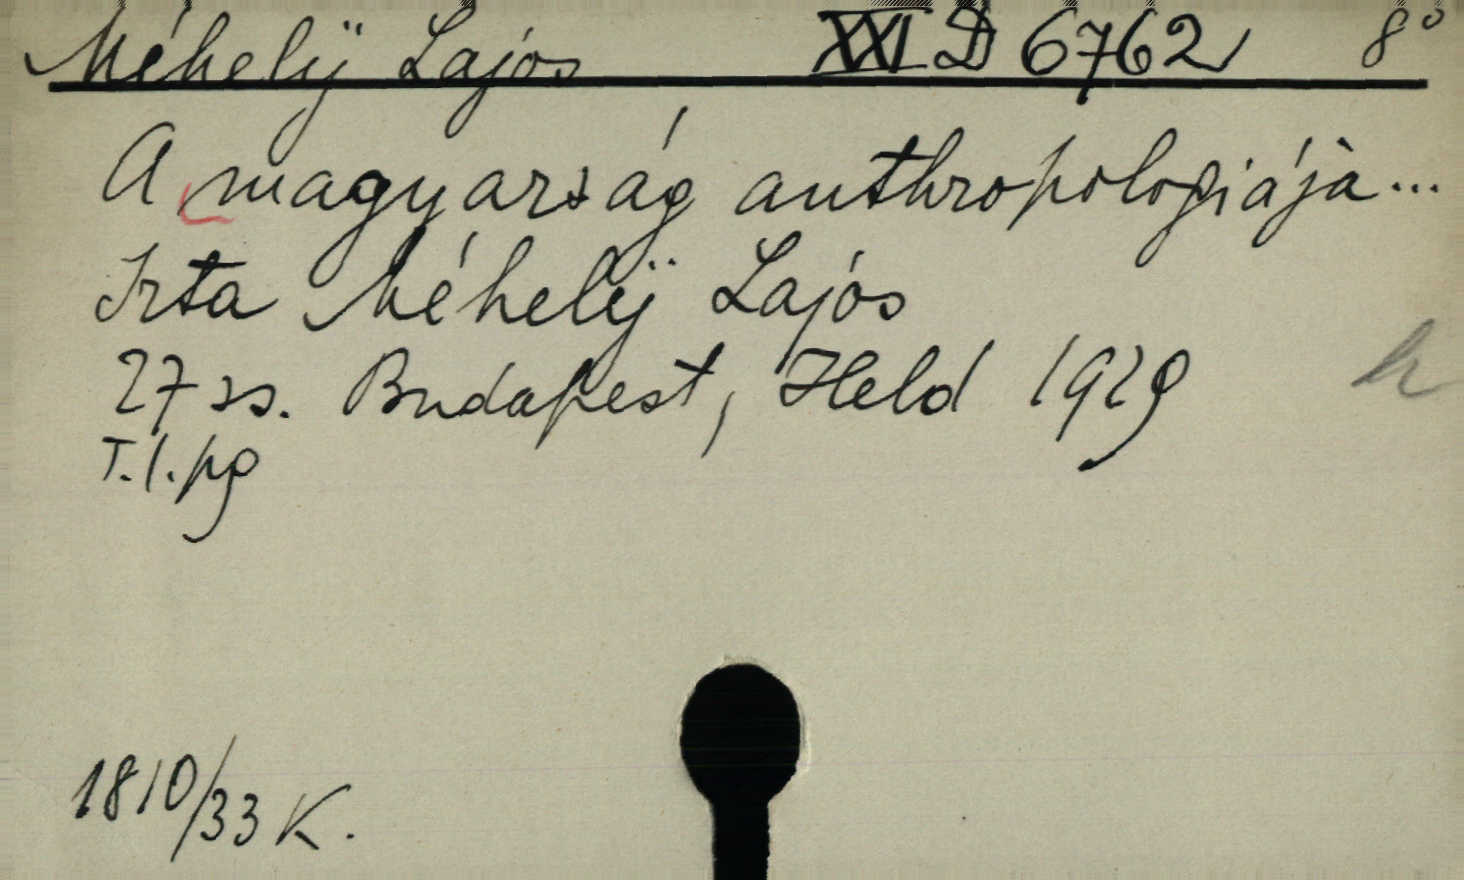 Méhelÿ Lajos XXI D 6762 8°
A magyarság anthropologiájà...
Irta Méhelÿ Lajós
27 ss. Budapest, Held 1929
T. l. pg
h
1810/33 K.